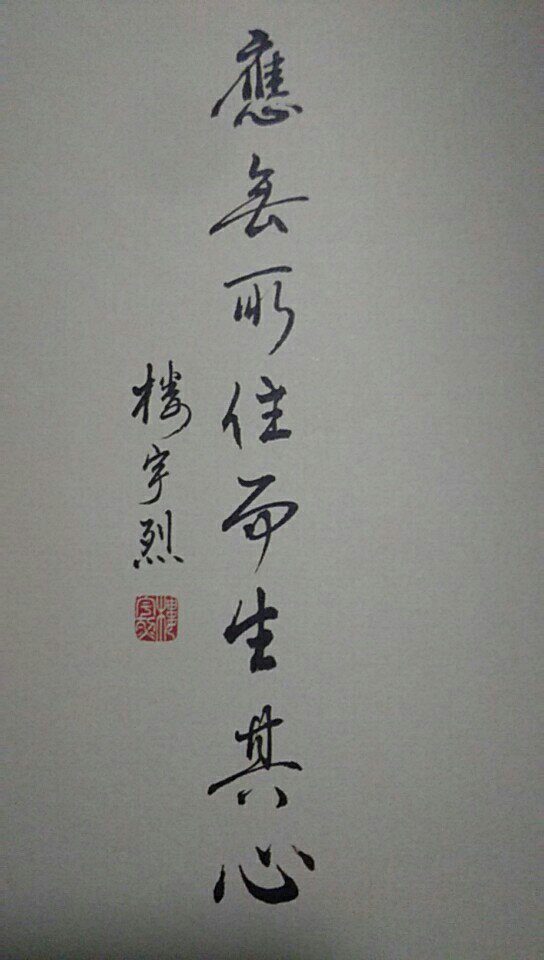 應無所住而生其心
楼宇烈
樓宇烈